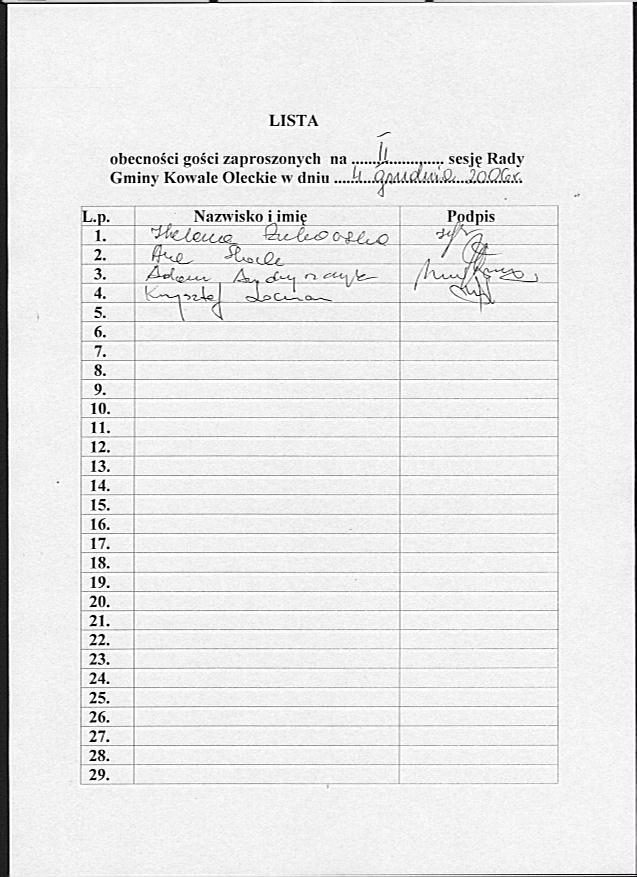 LISTA
obecności gości zaproszonych na ......II............. sesję Rady
Gminy Kowale Oleckie w dniu ....4 grudnia 2006r.
L.p. Nazwisko i imię Podpis
1. Helena Żukowska
2. Ana
3. Adam Andryszczyk
4. Krysztof Locman
5.
6.
7.
8.
9.
10.
11.
12.
13.
14.
15.
16.
17.
18.
19.
20.
21.
22.
23.
24.
25.
26.
27.
28.
29.